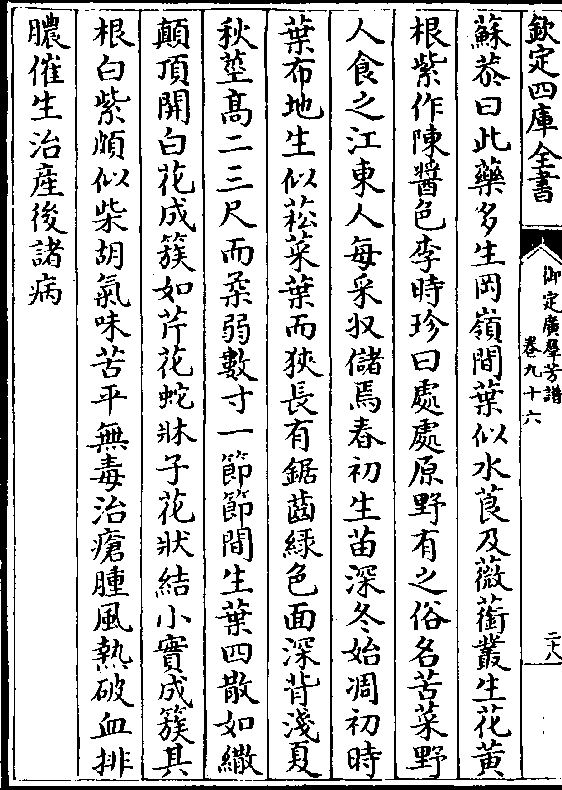 欽定四庫全書
御定廣羣芳譜
卷九十六
二十八
蘇恭曰此藥多生岡嶺間葉似水莨及薇蘅叢生花黄
根紫作陳醬色李時珍曰處處原野有之俗名苦菜野
人食之江東人每采收儲焉春初生苗深冬始凋初時
葉布地生似菘菜葉而狹長有鋸齒緑色面深背淺夏
秋莖髙二三尺而柔弱數寸一節節間生葉四散如繖
顛頂開白花成簇如芹花蛇牀子花狀結小實成簇其
根白紫頗似柴胡氣味苦平無毒治瘡腫風熱破血排
膿催生治産後諸病